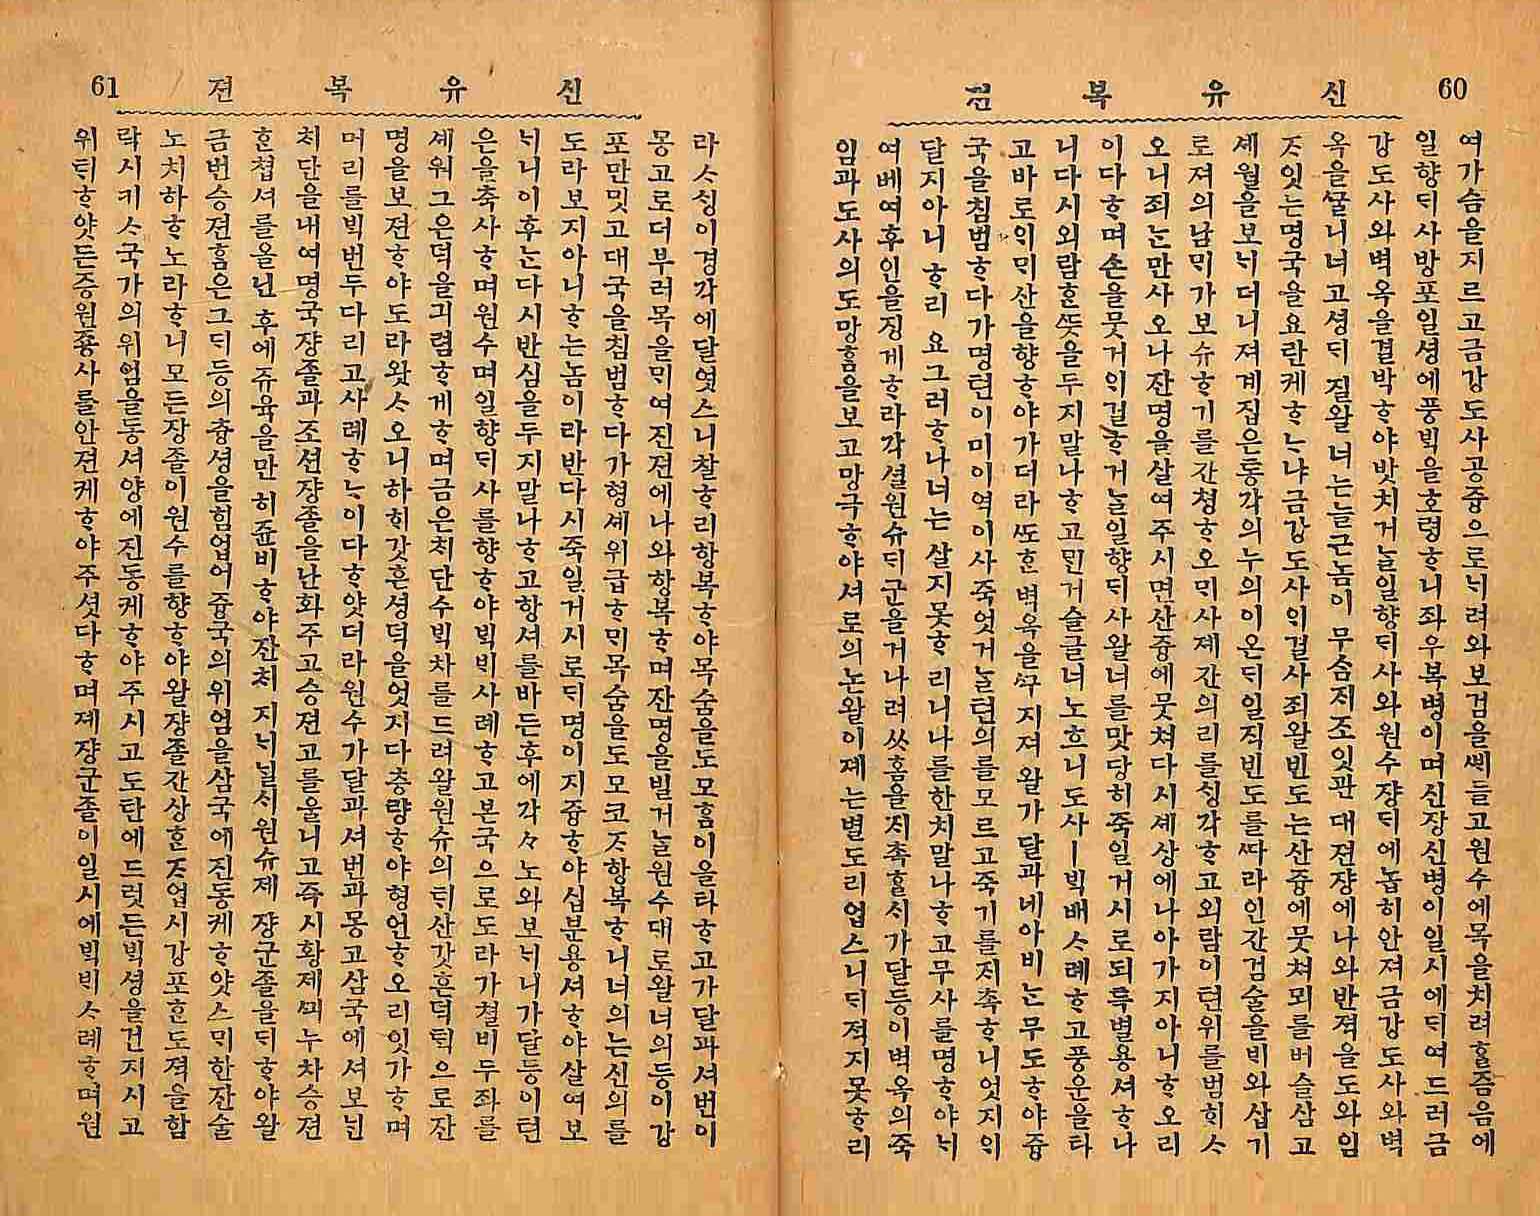 60 신유복젼
여가슴을지르고금강도사공즁으로ᄂᆡ려와보검을ᄲᅢ들고원수에목을치려ᄒᆞᆯ즘음에
일향ᄃᆡ사방포일셩에풍ᄇᆡᆨ을호령ᄒᆞ니좌우복병이며신장신병이일시에ᄃᆡ여드러금
강도사와벽옥을결박ᄒᆞ야밧치거ᄂᆞᆯ일향ᄃᆡ사와원수쟝ᄃᆡ에놉히안져금강도사와벽
옥을ᄭᅮᆯ니너고셩ᄃᆡ질왈너는늘근놈이무ᄉᆞᆷ지조잇관대젼쟝에나와반젹을도와임
ᄌᆞ잇는명국을요란케ᄒᆞᄂᆞ냐금강도사ᄋᆡ걸사죄왈빈도는산즁에뭇쳐뫼를버슬삼고
셰월을보ᄂᆡ더니져계집은통각의누의이온ᄃᆡ일직빈도를ᄯᅡ라인간검술을ᄇᆡ와삽기
로져의남ᄆᆡ가보슈ᄒᆞ기를간쳥ᄒᆞ오ᄆᆡ사졔간의리를ᄉᆡᆼ각ᄒᆞ고외람이텬위를범히ᄉᆞ
오니죄ᄂᆞᆫ만사오나잔명을살여주시면산즁에뭇쳐다시셰상에나아가지아니ᄒᆞ오리
이다ᄒᆞ며손을뭇거ᄋᆡ걸ᄒᆞ거ᄂᆞᆯ일향ᄃᆡ사왈너를맛당히죽일거시로되특별용셔ᄒᆞ나
니다시외람ᄒᆞᆫᄯᅳᆺ을두지말나ᄒᆞ고ᄆᆡᆫ거슬글너노흐니도사ㅣᄇᆡᆨ배ᄉᆞ례ᄒᆞ고풍운을타
고바로ᄋᆡᄆᆡ산을향ᄒᆞ야가더라ᄯᅩᄒᆞᆫ벽옥을ᄭᅮ지져왈가달과네아비ᄂᆞᆫ무도ᄒᆞ야즁
국을침범ᄒᆞ다가명텬이미이역이사죽엇거ᄂᆞᆯ텬의를모르고죽기를ᄌᆡ촉ᄒᆞ니엇지ᄋᆡ
달지아니ᄒᆞ리요그러ᄒᆞ나너는살지못ᄒᆞ리니나를한치말나ᄒᆞ고무사를명ᄒᆞ야ᄂᆡ
여베여후인을징게ᄒᆞ라각셜원슈ᄃᆡ군을거나려ᄊᆞ홈을ᄌᆡ촉ᄒᆞᆯᄉᆡ가달등이벽옥의죽
임과도사의도망ᄒᆞᆷ을보고망국ᄒᆞ야셔로의논왈이졔는별도리업스니ᄃᆡ적지못ᄒᆞ리
61 신유복젼
라ᄉᆞᄉᆡᆼ이경각에달엿스니찰ᄒᆞ리항복ᄒᆞ야목숨을도모ᄒᆞᆷ이올타ᄒᆞ고가달과셔번이
몽고로더부러목을ᄆᆡ여진젼에나와항복ᄒᆞ며잔명을빌거ᄂᆞᆯ원수대로왈너의등이강
포만밋고대국을침범ᄒᆞ다가형셰위급ᄒᆞᄆᆡ목숨을도모코ᄌᆞ항복ᄒᆞ니너의는신의를
도라보지아니ᄒᆞ는놈이라반다시죽일거시로ᄃᆡ명이지즁ᄒᆞ야십분용셔ᄒᆞ야살여보
ᄂᆡ니이후ᄂᆞᆫ다시반심을두지말나ᄒᆞ고항셔를바든후에각々노와보ᄂᆡ니가달등이텬
은을축사ᄒᆞ며원수며일향ᄃᆡ사를향ᄒᆞ야ᄇᆡᆨᄇᆡ사례ᄒᆞ고본국으로도라가쳘비두좌를
셰워그은덕을긔렴ᄒᆞ게ᄒᆞ며금은치단수ᄇᆡᆨ차를드려왈원슈의ᄐᆡ산갓흔덕ᄐᆡᆨ으로잔
명을보젼ᄒᆞ야도라왓ᄉᆞ오니하히갓흔셩덕을엇지다층량ᄒᆞ야형언ᄒᆞ오리잇가ᄒᆞ며
머리를ᄇᆡᆨ번두다리고사례ᄒᆞᄂᆞ이다ᄒᆞ얏더라원수가달과셔번과몽고삼국에셔보ᄂᆡᆫ
치단을내여명국쟝졸과조션쟝졸을난화주고승젼고를울니고즉시황제ᄭᅴ누차승젼
ᄒᆞᆫ쳡셔를올닌후에쥬육을만히쥰비ᄒᆞ야잔치지ᄂᆡᆯᄉᆡ원슈졔쟝군졸을ᄃᆡᄒᆞ야왈
금번승젼ᄒᆞᆷ은그ᄃᆡ등의츙셩을힘업어즁국의위엄을삼국에진동케ᄒᆞ얏스ᄆᆡ한잔술
노치하ᄒᆞ노라ᄒᆞ니모든장졸이원수를향ᄒᆞ야왈쟝졸잔상ᄒᆞᆫᄌᆞ업시강포ᄒᆞᆫ도젹을함
락시키ᄉᆞ국가의위엄을동셔양에진동케ᄒᆞ야주시고도탄에드럿든ᄇᆡᆨ셩을건지시고
위ᄐᆡᄒᆞ얏든즁원죵사를안젼케ᄒᆞ야주셧다ᄒᆞ며제쟝군졸이일시에ᄇᆡᆨᄇᆡᄉᆞ례ᄒᆞ며원